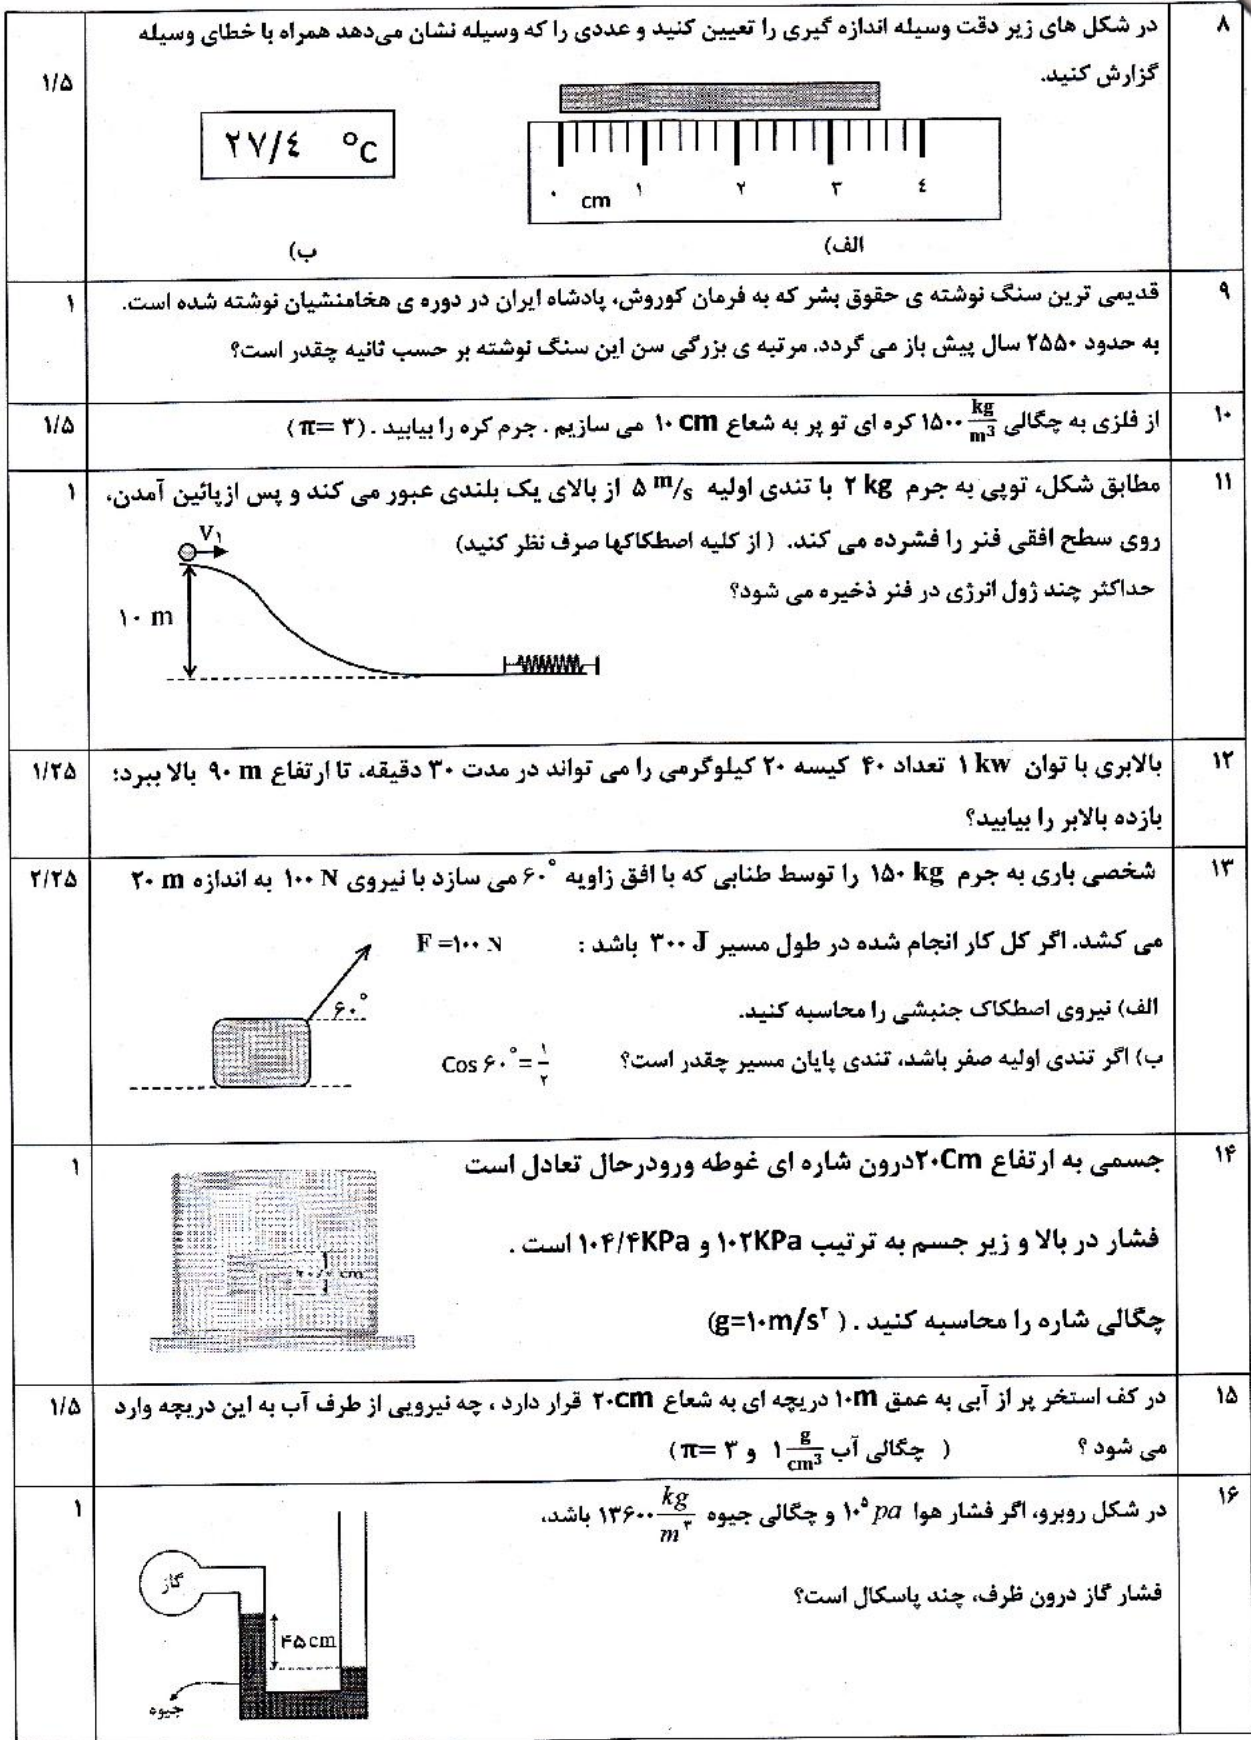 ۸
در شکل های زیر دقت وسیله اندازه گیری را تعیین کنید و عددی را که وسیله نشان می‌دهد همراه با خطای وسیله
گزارش کنید.
۱/۵
۲۷/٤ °C
۰ cm ۱ ۲ ۳ ٤
الف)
ب)
۹
قدیمی ترین سنگ نوشته ی حقوق بشر که به فرمان کوروش، پادشاه ایران در دوره ی هخامنشیان نوشته شده است.
به حدود ۲۵۵۰ سال پیش باز می گردد. مرتبه ی بزرگی سن این سنگ نوشته بر حسب ثانیه چقدر است؟
۱
۱۰
از فلزی به چگالی ۱۵۰۰ kg/m³ کره ای تو پر به شعاع ۱۰ cm می سازیم . جرم کره را بیابید . (π= ۳)
۱/۵
۱۱
مطابق شکل، توپی به جرم ۲ kg با تندی اولیه ۵ m/s از بالای یک بلندی عبور می کند و پس ازپائین آمدن،
روی سطح افقی فنر را فشرده می کند. ( از کلیه اصطکاکها صرف نظر کنید)
حداکثر چند ژول انرژی در فنر ذخیره می شود؟
۱
V₁
۱۰ m
۱۲
بالابری با توان ۱ kw تعداد ۴۰ کیسه ۲۰ کیلوگرمی را می تواند در مدت ۳۰ دقیقه، تا ارتفاع ۹۰ m بالا ببرد؛
بازده بالابر را بیابید؟
۱/۲۵
۱۳
شخصی باری به جرم ۱۵۰ kg را توسط طنابی که با افق زاویه ۶۰° می سازد با نیروی ۱۰۰ N به اندازه ۲۰ m
می کشد. اگر کل کار انجام شده در طول مسیر ۳۰۰ J باشد :
F =۱۰۰ N
الف) نیروی اصطکاک جنبشی را محاسبه کنید.
ب) اگر تندی اولیه صفر باشد، تندی پایان مسیر چقدر است؟
Cos ۶۰° = ۱/۲
۲/۲۵
۶۰°
۱۴
جسمی به ارتفاع ۲۰Cmدرون شاره ای غوطه ورودرحال تعادل است
فشار در بالا و زیر جسم به ترتیب ۱۰۲KPa و ۱۰۴/۴KPa است .
چگالی شاره را محاسبه کنید . ( g=۱۰m/s۲)
۱
cm
۱۵
در کف استخر پر از آبی به عمق ۱۰m دریچه ای به شعاع ۲۰cm قرار دارد ، چه نیرویی از طرف آب به این دریچه وارد
می شود ؟ ( چگالی آب ۱ g/cm³ و π= ۳)
۱/۵
۱۶
در شکل روبرو، اگر فشار هوا ۱۰⁵ pa و چگالی جیوه ۱۳۶۰۰ kg/m۳ باشد،
فشار گاز درون ظرف، چند پاسکال است؟
۱
گاز
۴۵ cm
جیوه